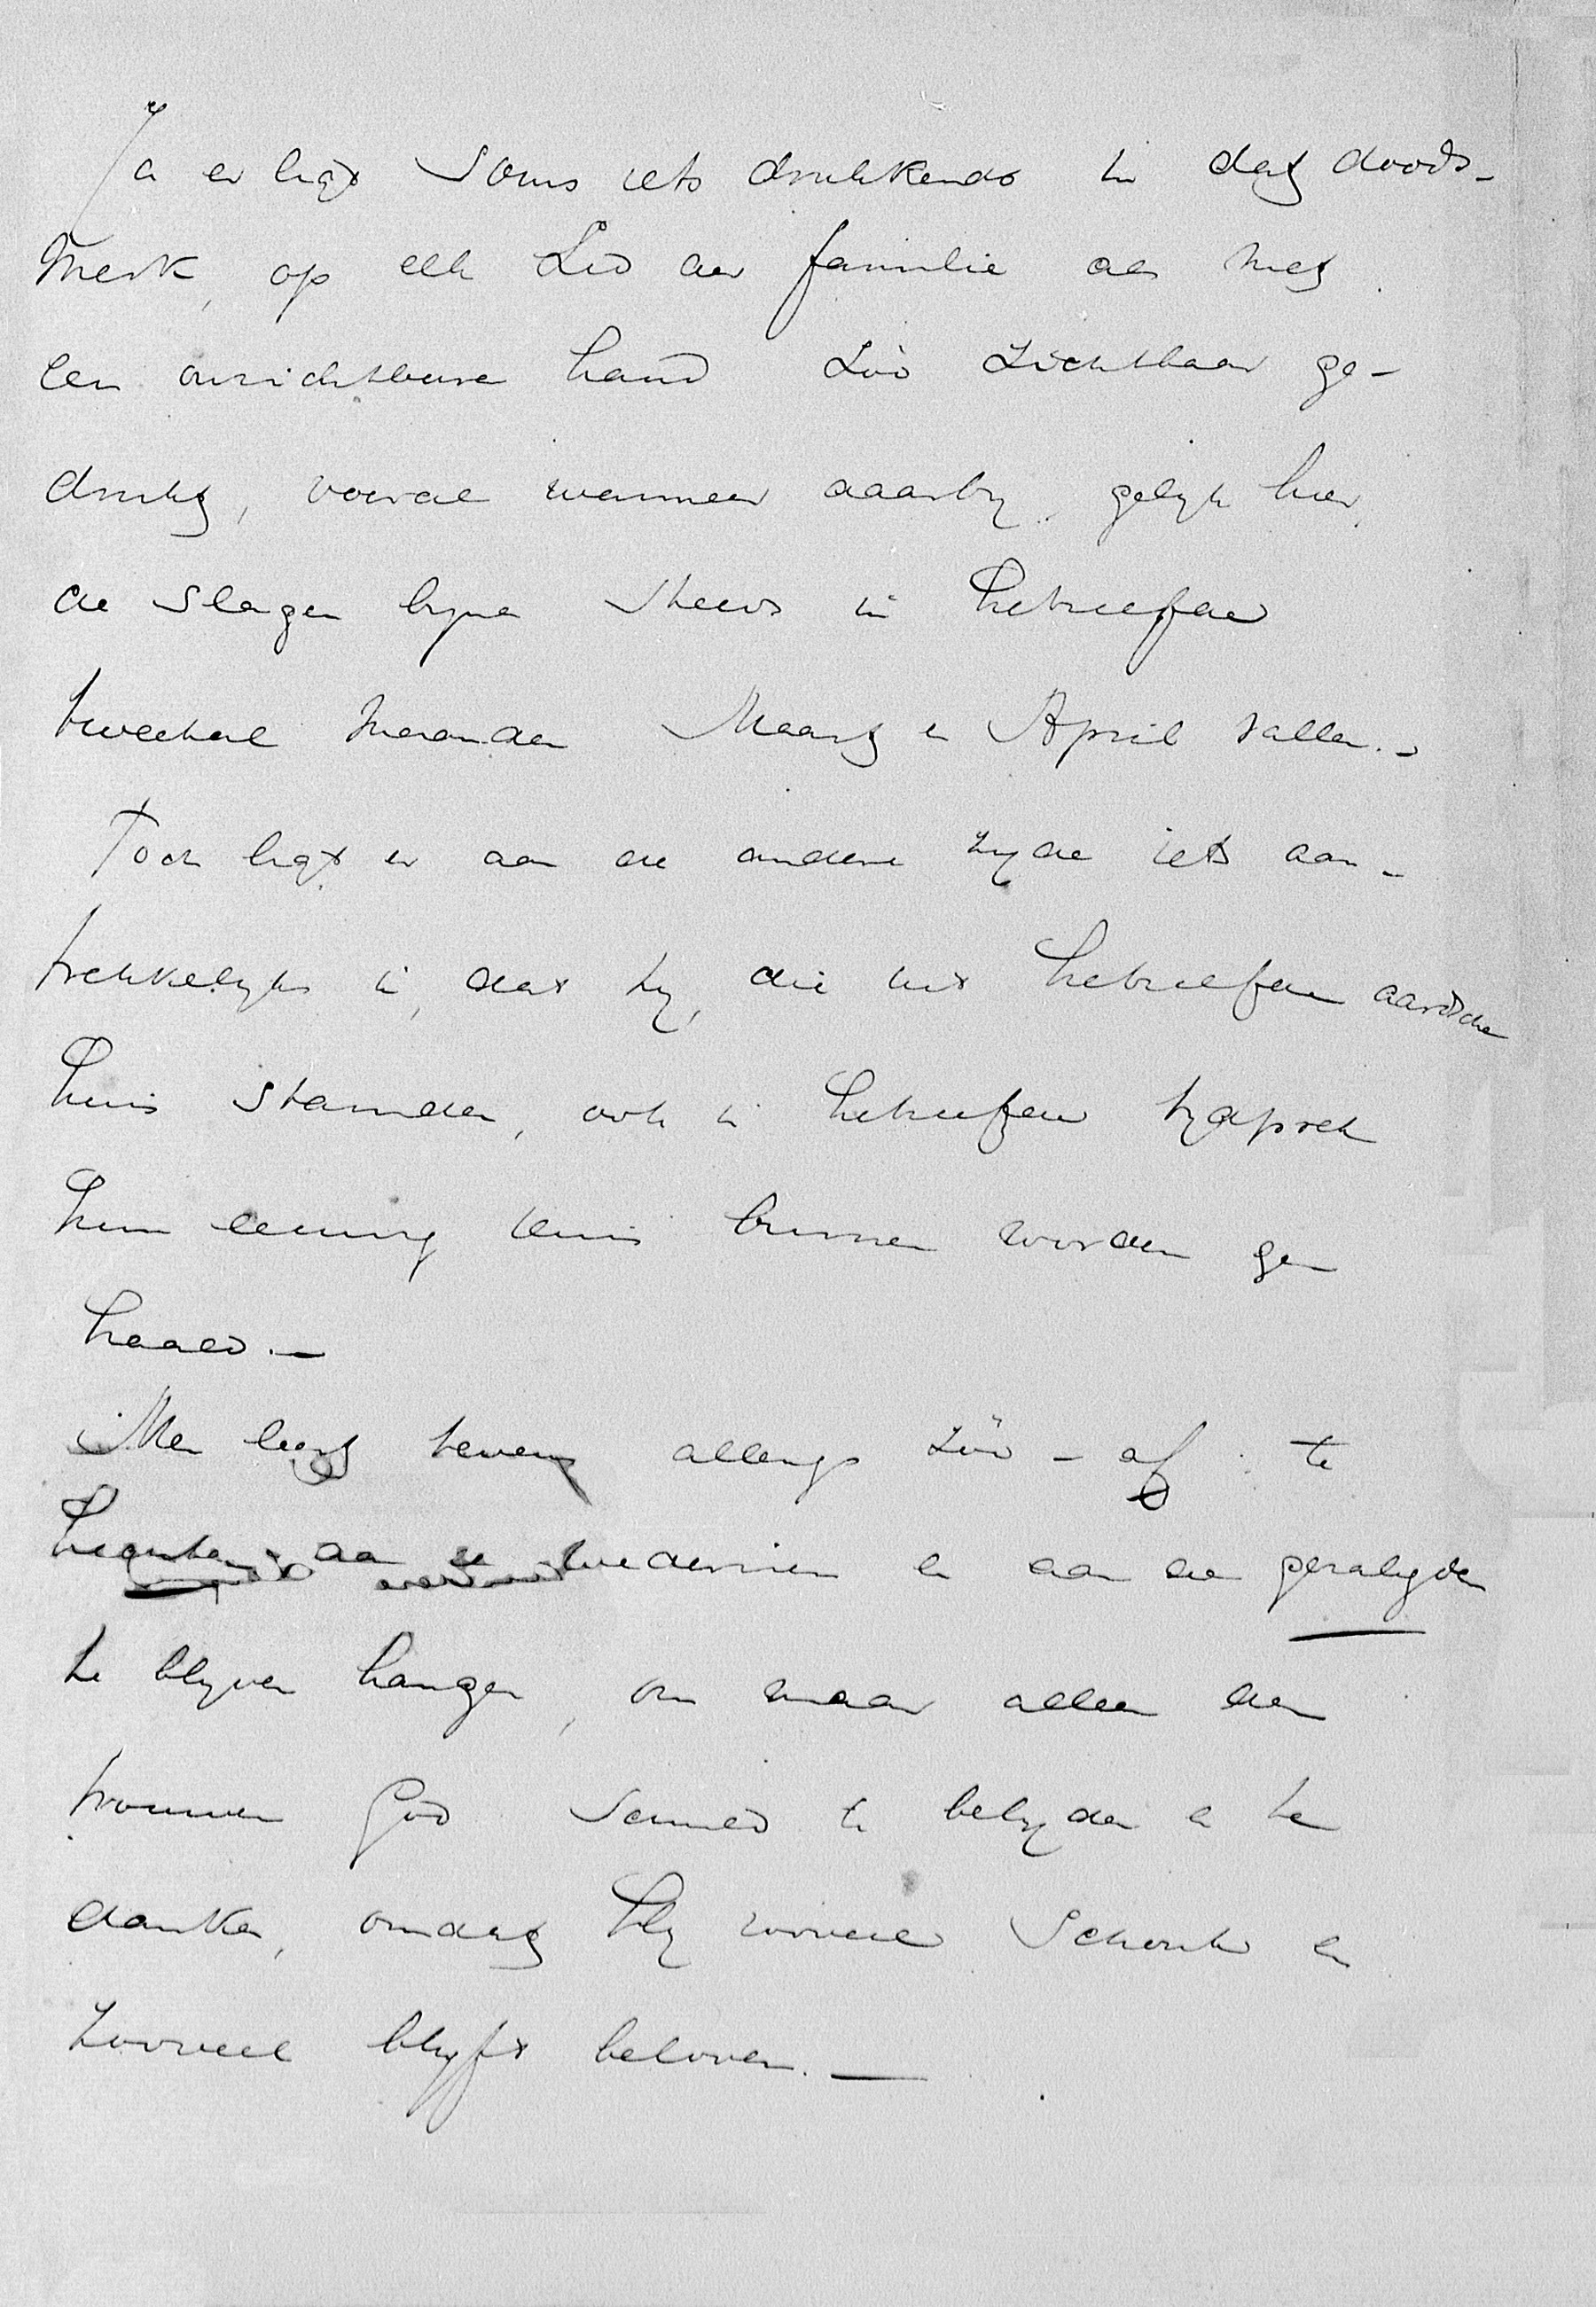 Ja er ligt soms iets drukkends in dat doods-
merk, op elk Lid der familie als met
een onzichtbare hand zóó zichtbaar ge-
drukt, vooral wanneer daarby, gelyk hier,
de slagen byna steeds in hetzelfde
tweetal maanden Maart en April vallen. -
Toch ligt er aan de andere zyde iets aan-
trekkelyks in, dat zy, die uit hetzelfde aardsche
huis stamden, ook in hetzelfde tydsperk
hun eeuwig huis binnen worden ge-
haald. -
Men leert tevens allengs zóó-af te
aan de wedernen en aan de geraligden
te blyven hangen, om maar alleen den
trouwen God samen te belyden en te
danken, omdat Hy zooveel schonk en
zooveel blyft beloven. -